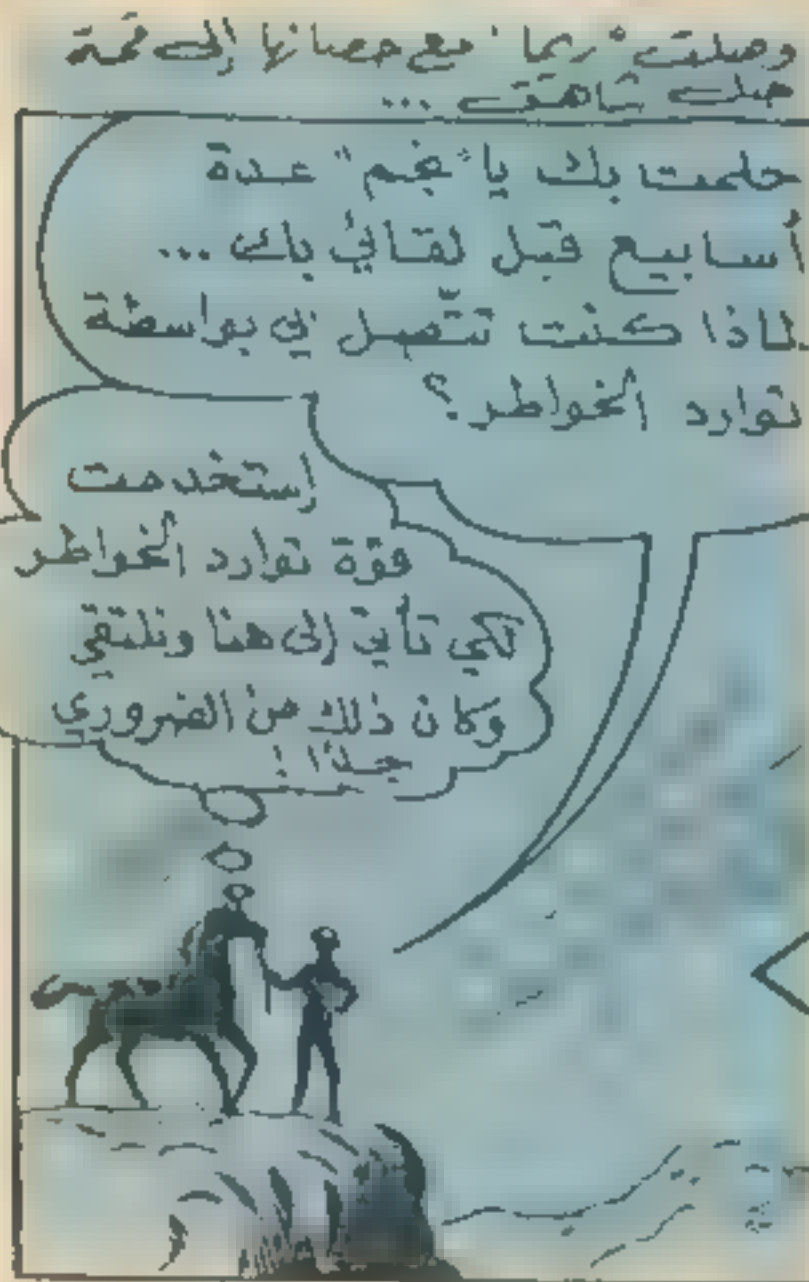 وصلت "ريما" مع حصانها إلى قمة
جبل شاهق ...
حلمت بك يا "نجم" عدة
أسابيع قبل لقائي بك ...
لماذا كنت تتّصل بي بواسطة
توارد الخواطر؟
إستخدمت
قوّة توارد الخواطر
لكي تأتي إلى هنا ونلتقي
وكان ذلك من الضروري
جدًا !